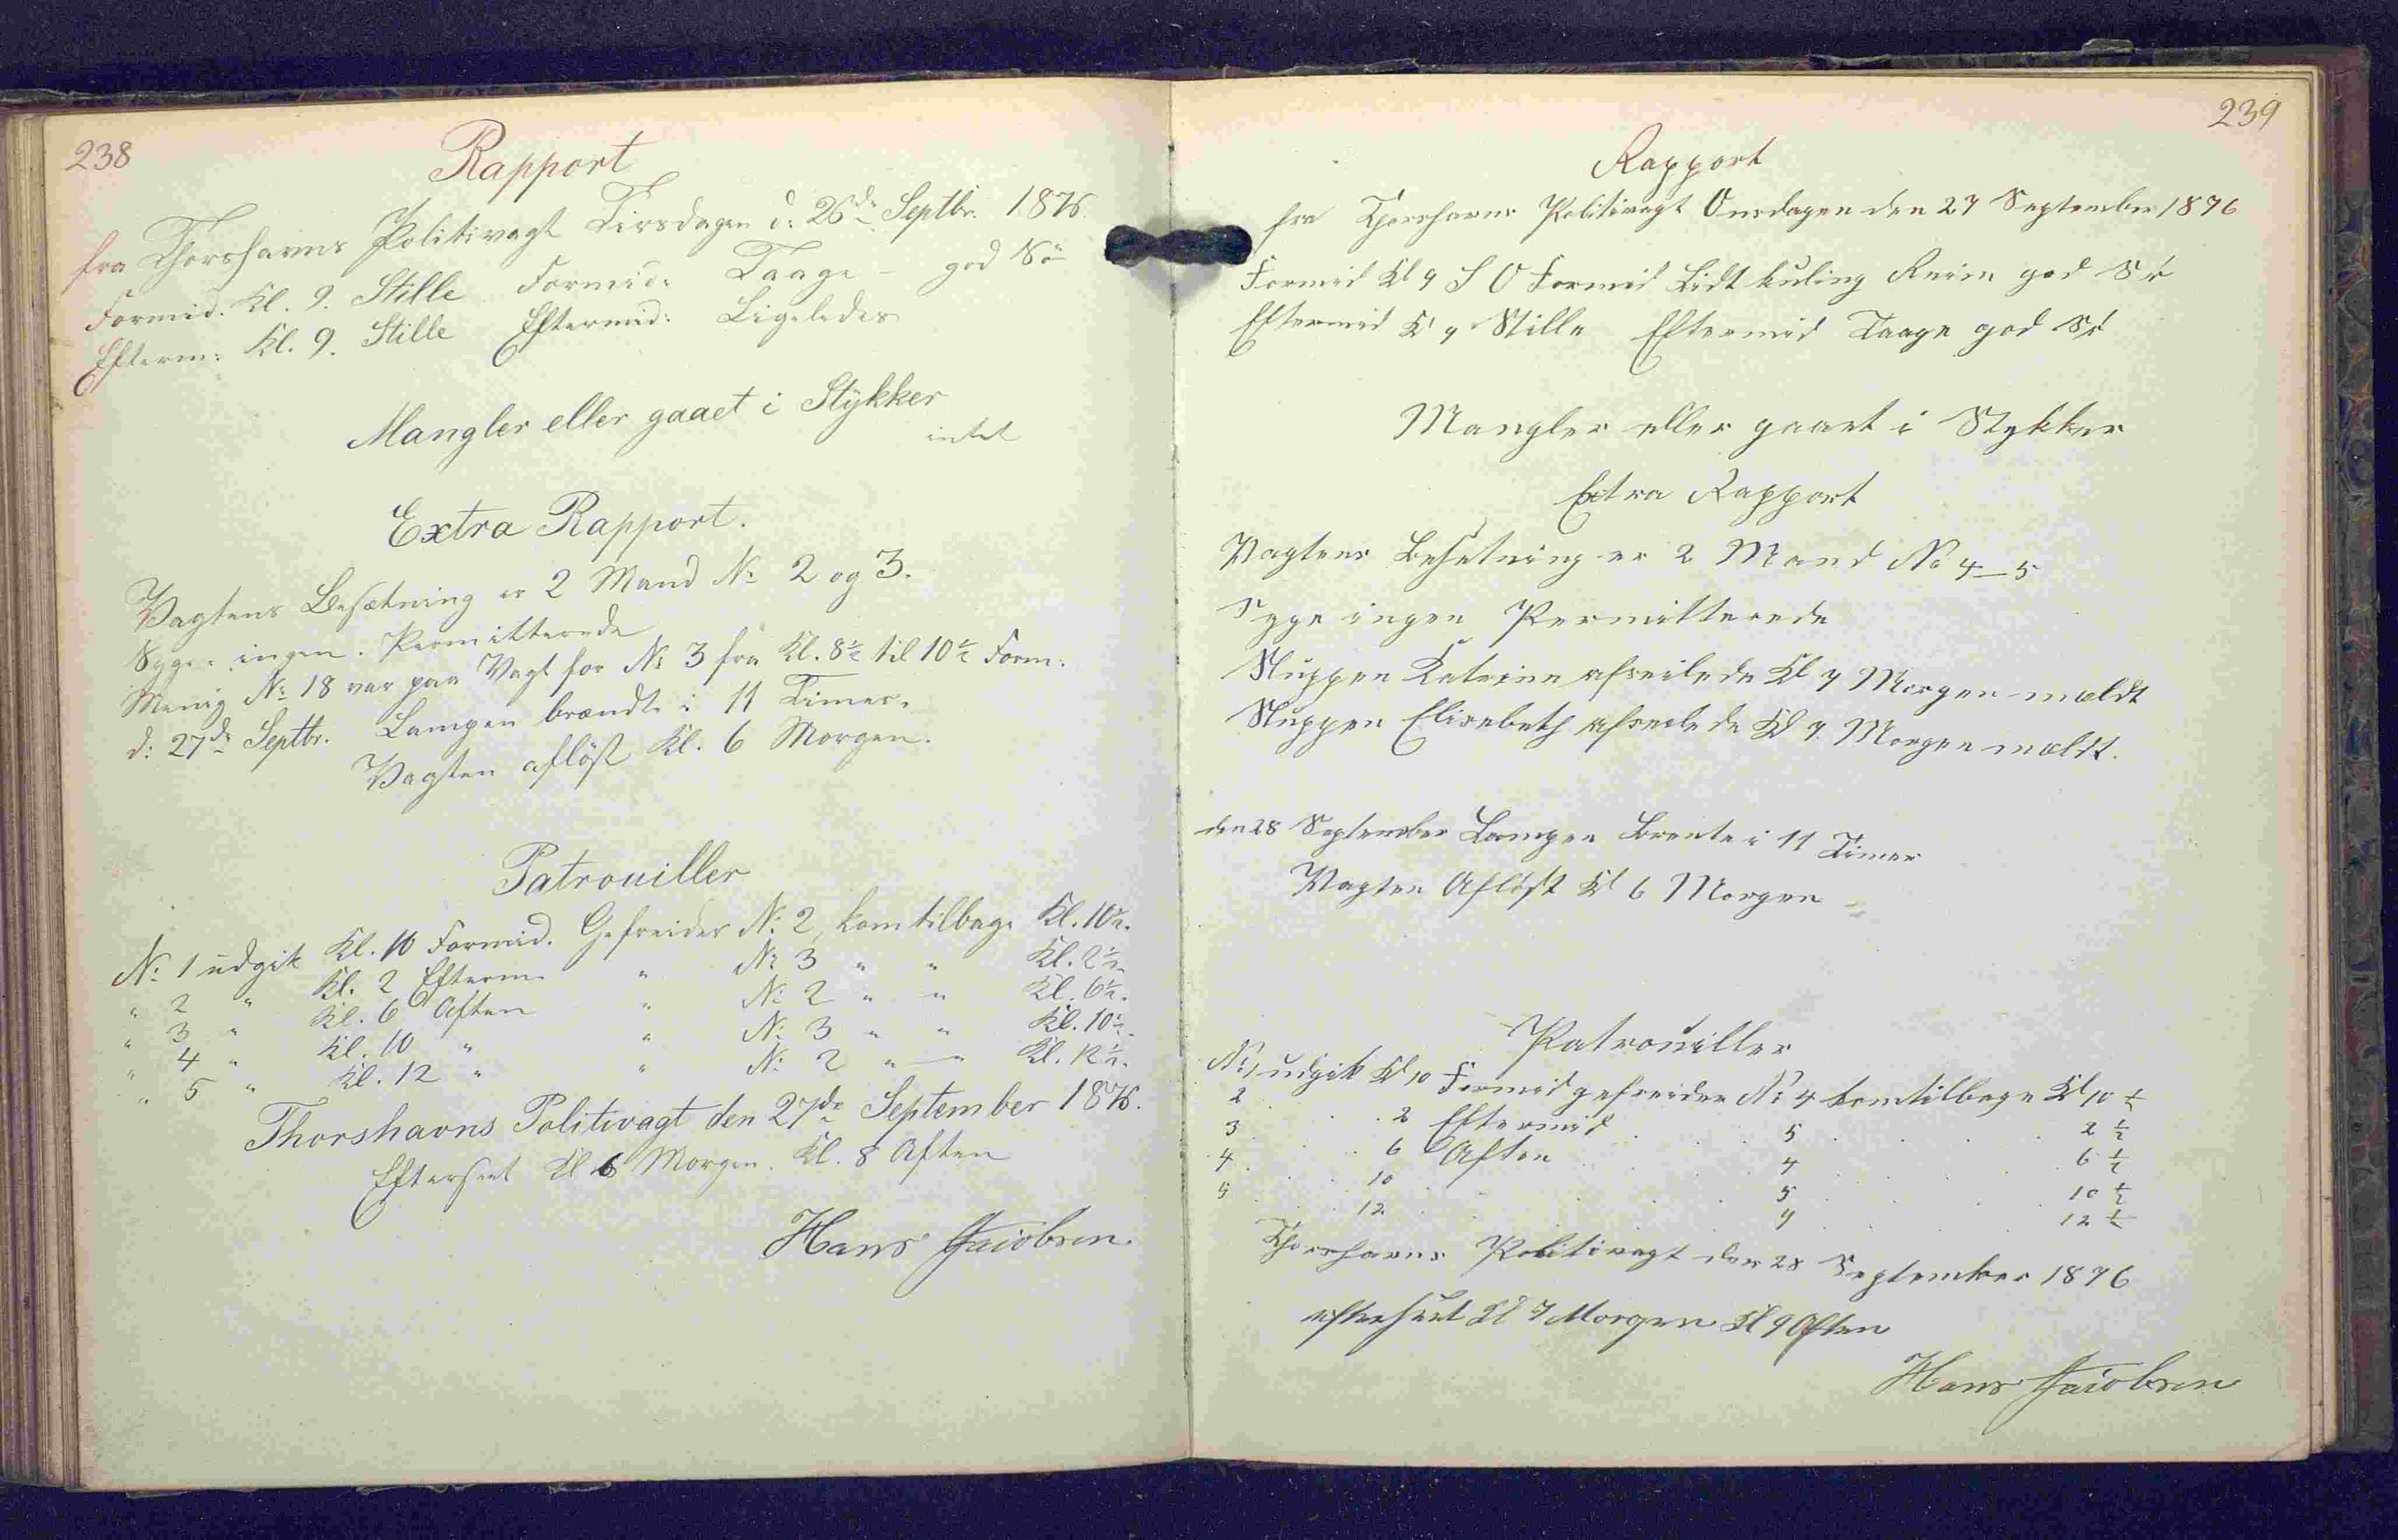 238
Rapport
fra Thorshavns Politivagt Tirsdagen d: 26de Septbr. 1876.
Formid. Kl. 9. Stille Formid: Taage - god Sö
Efterm: Kl. 9. Stille Eftermid: Ligeledes
Mangler eller gaaet i Stÿkker
intet
Extra Rapport.
Vagtens Besætning er 2 Mand No 2 og 3.
Syge: ingen. Permitterede
Menig No 18 var paa Vagt for No 3 fra Kl. 8½ til 10½ Form:
d: 27de Septbr. Lampen brændte i 11 Timer.
Vagten aflöst Kl. 6 Morgen.
Patrouiller
No 1 udgik Kl. 10 Formid. Gefreider No 2, kom tilbage Kl. 10½.
" 2 " Kl. 2 Efterm. " No 3 " " Kl. 2½.
" 3 " Kl. 6 Aften " No 2 " " Kl. 6½.
" 4 " Kl. 10 " " No 3 " " Kl. 10½.
" 5 " Kl. 12 " " No 2 " " Kl. 12½.
Thorshavns Politivagt den 27de September 1876.
Efterseet Kl 6 Morgen. Kl. 8 Aften
Hans Jacobsen
239
Rapport
fra Thorshavns Politivagt Onsdagen den 27 September 1876
Formid Kl 9 S O Formid Lidt kuling Rein god Sö
Eftermid Kl 9 Stille Eftermid Taage god Sö
Mangler eller gaaet i Stykker
Extra Rapport
Vagtens Besetning er 2 Mand No 4–5
Syge ingen Permitterede
Sluppen Katrine afseilede Kl 7 Morgen mældt
Sluppen Elisebeth afseilede Kl 7 Morgen mældt.
den 28 September Lampen Brente i 11 Timer
Vagten Aflöst Kl 6 Morgen
Patrouiller
No 1 udgik Kl 10 Formid gefreider No 4 komtilbage Kl 10 ½
2 . . 2 Eftermid . . 5 . . . 2 ½
3 . . 6 Aften . . 4 . . . 6 ½
4 . . 10 . . . 5 . . . 10 ½
5 . . 12 . . . 4 . . . 12 ½
Thorshavns Politivagt den 28 September 1876
efterseet Kl 7 Morgen Kl 9 Aften
Hans Jacobsen